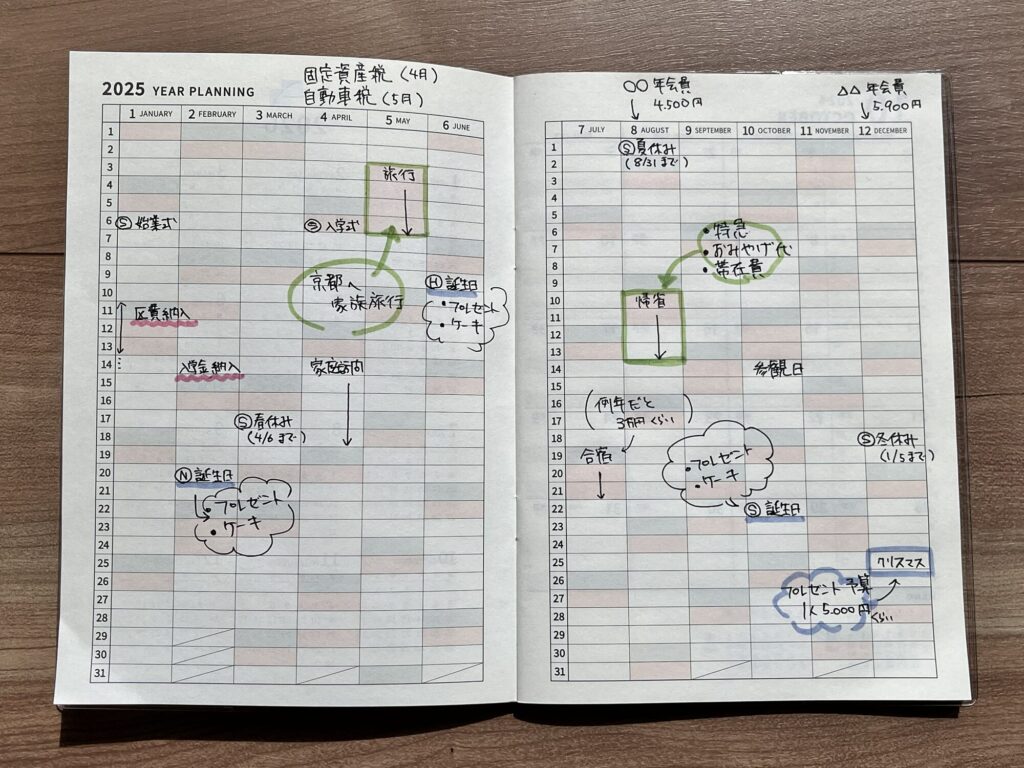 固定資産税(4月)
自動車税(5月)
2025 YEAR PLANNING
1 JANUARY
2 FEBRUARY
3 MARCH
4 APRIL
5 MAY
6 JUNE
1
2
3
旅行
4
5
6
Ⓢ始業式
Ⓢ入学式
7
8
9
京都へ
家族旅行
Ⓗ誕生日
10
・プレゼント
・ケーキ
11
区費納入
12
13
14
入学金納入
家庭訪問
15
16
17
Ⓢ春休み
(4/6まで)
18
19
20
Ⓝ誕生日
21
・プレゼント
22
・ケーキ
23
24
25
26
27
28
29
30
31
○○年会員
4.500円
△△年会員
5.900円
7 JULY
8 AUGUST
9 SEPTEMBER
10 OCTOBER
11 NOVEMBER
12 DECEMBER
1
Ⓢ夏休み
2
(8/31まで)
3
4
5
6
・特急
7
・おみやげ代
8
・滞在費
9
10
帰省
11
12
13
14
参観日
15
16
(例年だと
3万円くらい)
17
18
Ⓢ冬休み
(1/5まで)
19
合宿
・プレゼント
・ケーキ
20
21
22
Ⓢ誕生日
23
24
25
クリスマス
26
プレゼント予算
27
1人5.000円
くらい
28
29
30
31